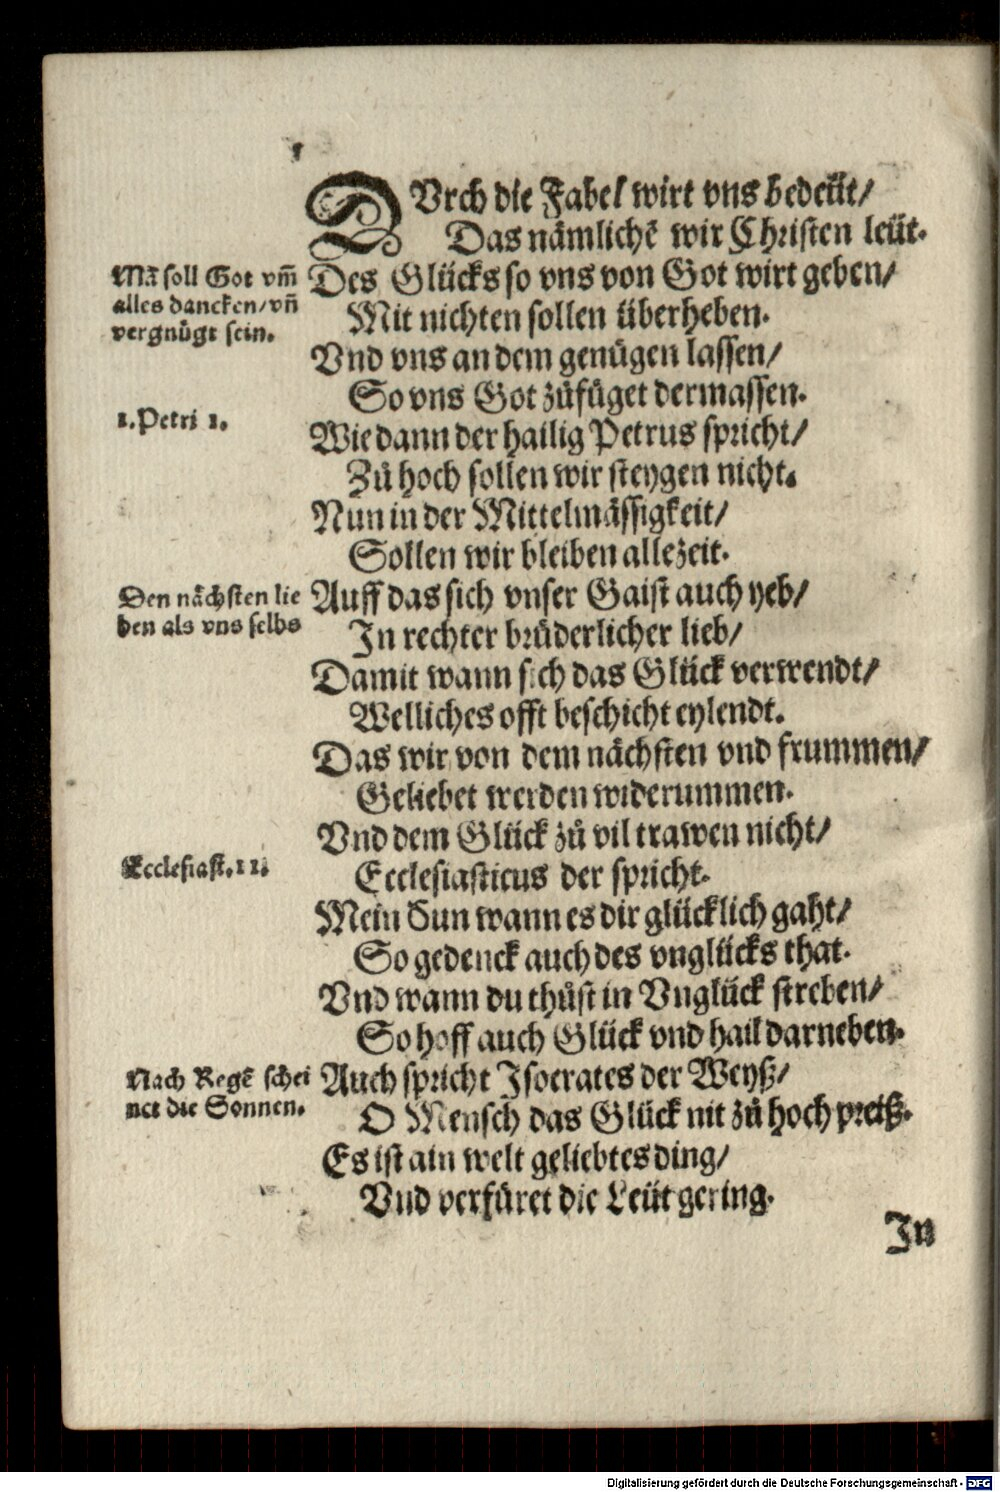 DVrch die Fabel wirt vns bedeüt/
Das nämlichẽ wir Christen leüt.
Mã soll Got vm̃
alles dancken/vñ
vergnügt sein.
Des Glücks so vns von Got wirt geben/
Mit nichten sollen überheben.
Vnd vns an dem genügen lassen/
So vns Got zůfüget dermassen.
1. Petri 1.
Wie dann der hailig Petrus spricht/
Zů hoch sollen wir steygen nicht.
Nun in der Mittelmässigkeit/
Sollen wir bleiben allezeit.
Den nächsten lie
ben als vns selbs
Auff das sich vnser Gaist auch yeb/
In rechter brüderlicher lieb/
Damit wann sich das Glück verwendt/
Welliches offt beschicht eylendt.
Das wir von dem nächsten vnd frummen/
Geliebet werden widerummen.
Vnd dem Glück zů vil trawen nicht/
Ecclesiast. 11.
Ecclesiasticus der spricht.
Mein Sun wann es dir glücklich gaht/
So gedenck auch des vnglücks that.
Vnd wann du thůst in Vnglück streben/
So hoff auch Glück vnd hail darneben.
Nach Regẽ schei
net die Sonnen.
Auch spricht Isocrates der Weyß/
O Mensch das Glück nit zů hoch preiß.
Es ist ain welt geliebtes ding/
Vnd verfüret die Leüt gering.
In
Digitalisierung gefördert durch die Deutsche Forschungsgemeinschaft - DFG